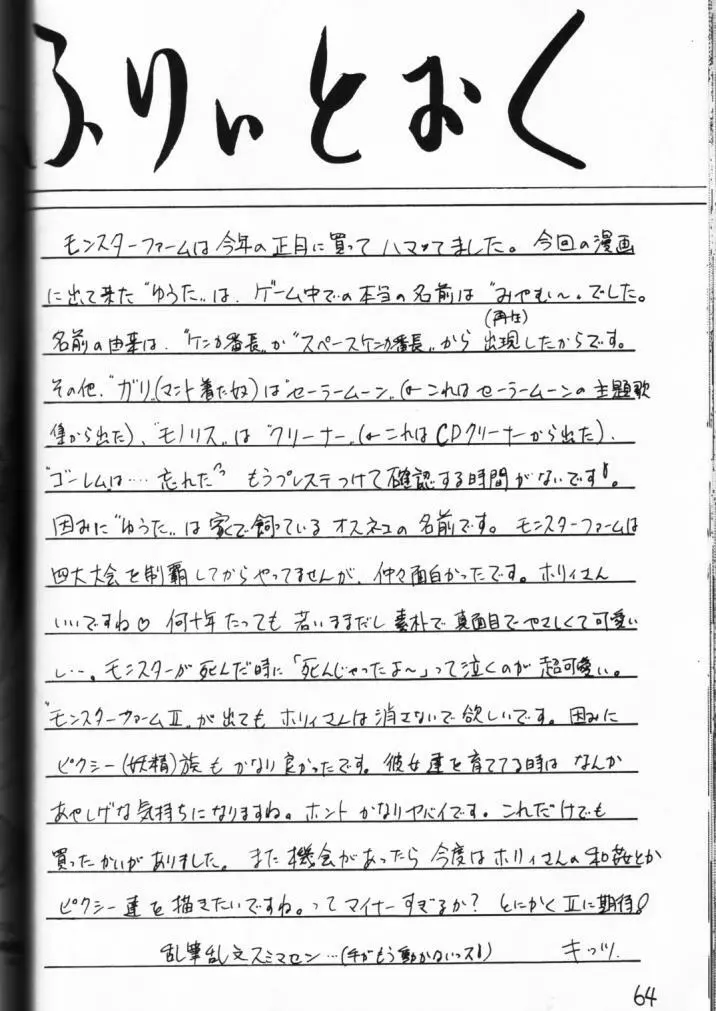 ふりぃとおく
モンスターファームは今年の正月に買ってハマッてました。今回の漫画
に出て来た〝ゆうた〟は、ゲーム中での本当の名前は〝みやむ〜〟でした。
名前の由来は、〝ケンカ番長〟か〝スペースケンカ番長〟から(再生)出現したからです。
その他、〝ガリ〟(マント着た奴)は〝セーラームーン〟(←これはセーラームーンの主題歌
集から出た)、〝モノリス〟は〝クリーナー〟(←これはCDクリーナーから出た)、
〝ゴーレムは…忘れた〟 もうプレステつけて確認する時間がないです!。
因みに〝ゆうた〟は家で飼っているオスネコの名前です。モンスターファームは
四大大会を制覇してからやってませんが、仲々面白かったです。ホリィさん
いいですね♡ 何十年たっても若いままだし素朴で真面目でやさしくて可愛い
し…。モンスターが死んだ時に「死んじゃったよ〜」って泣くのが超可愛い。
〝モンスターファームⅡ〟が出てもホリィさんは消さないで欲しいです。因みに
ピクシー(妖精)族もかなり良かったです。彼女達を育ててる時はなんか
あやしげな気持ちになりますね。ホントかなりヤバイです。これだけでも
買ったかいがありました。また機会があったら今度はホリィさんの和姦とか
ピクシー達を描きたいですね。ってマイナーすぎるか?とにかくⅡに期待!
乱筆乱文スミマセン…(手がもう動かないっス!) キッツ.
64